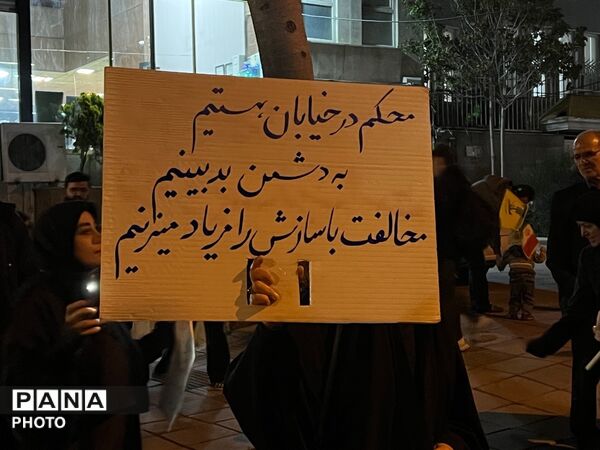 محکم در خیابان هستیم
به دشمن بدبینیم
مخالفت با سازش را فریاد میزنیم
PANA
PHOTO